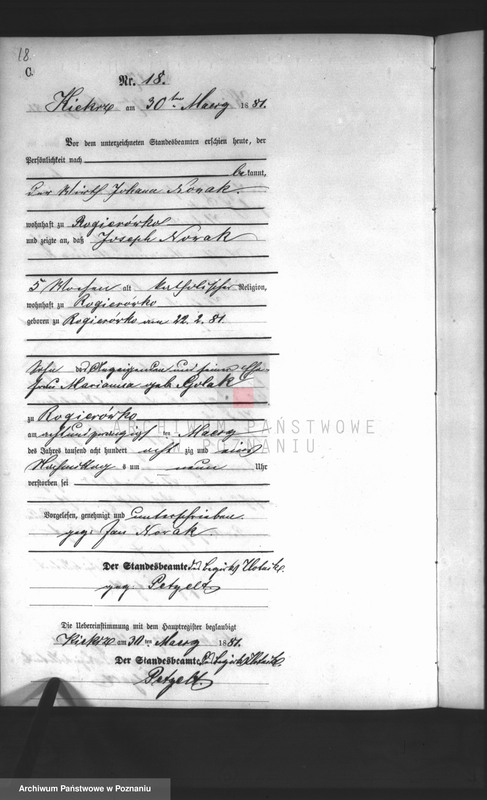 18.
C.
Nr. 18.
Kiekrz am 30 ten Maerz 1881.
Vor dem unterzeichneten Standesbeamten erschien heute, der
Persönlichkeit nach
bekannt,
der Wirth Johann Novak.
wohnhaft zu Rogierówko
und zeigte an, daß Joseph Novak
5 Wochen alt katholischer Religion,
wohnhaft zu Rogierówko
geboren zu Rogierówko am 22. 2. 81
Sohn des Anzeigenden und seiner Ehe-
frau Marianna geb. Golak
zu Rogierówko
am achtundzwanzigst ten Maerz
des Jahres tausend acht hundert acht zig und eins
Nachmittag s um neun Uhr
verstorben sei
Vorgelesen, genehmigt und unterschrieben.
gez. Jan Novak.
Der Standesbeamte d. Bezirks Złotnik.
gez. Petzelt.
Die Uebereinstimmung mit dem Hauptregister beglaubigt
Kiekrz am 30 ten Maerz 1881.
Der Standesbeamte d. Bezirks Złotnik
Petzelt.
ARCHIWUM PAŃSTWOWE
W POZNANIU
Archiwum Państwowe w Poznaniu